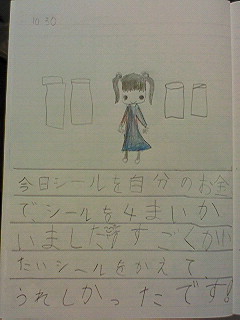 10 30
今日シールを自分のお金
で、シールを4まいか
いました。すごくかい
たいシールをかえて
うれしかったです!